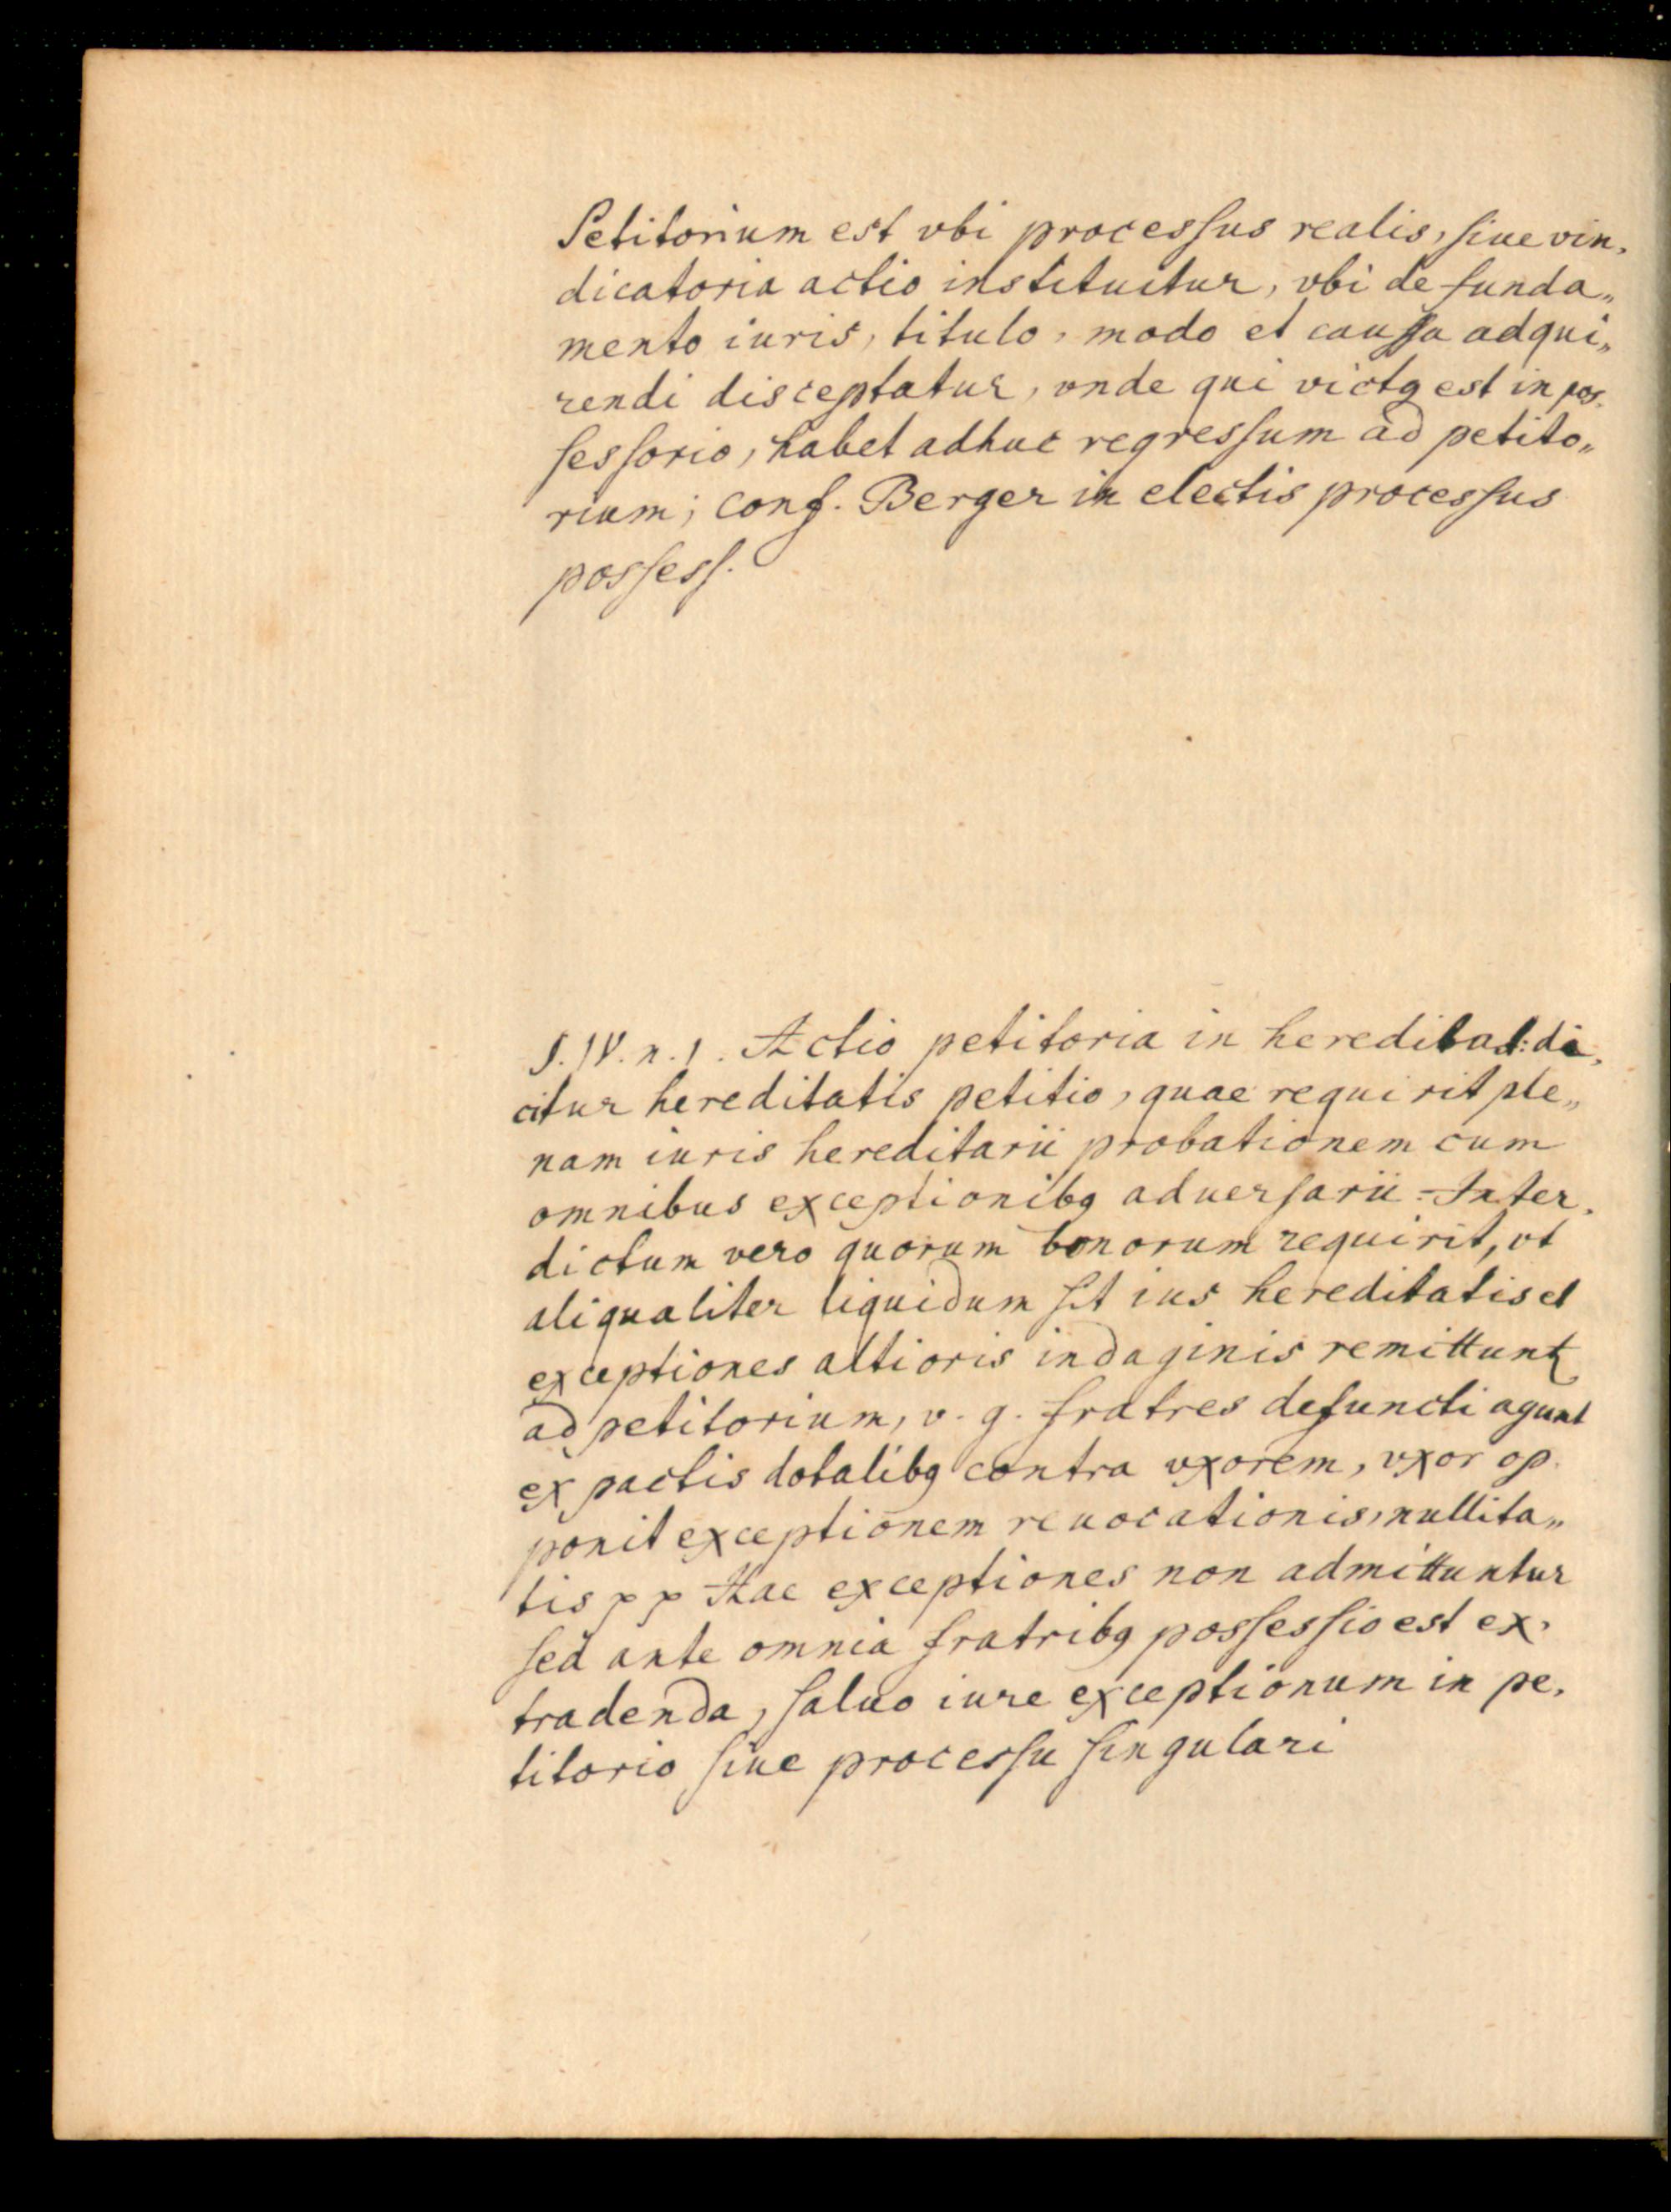 Petitorium est vbi procesſus realis, ſiue vin,
dicatoria actio instituitur, vbi de funda„
mento iuris, titulo, modo et cauſſa adqui„
rendi disceptatur, vnde qui victꝯ est in poſ,
ſesſorio, habet adhuc regresſum ad petito„
rium; conf. Berger in electis procesſus
posſesſ.
§. IV. n. 1. Actio petitoria in hereditat: di,
citur hereditatis petitio, quae requirit ple„
nam iuris hereditarii probationem cum
omnibus exceptionibꝯ aduerſarii - Inter,
dictum vero quorum bonorum requirit, vt
aliqualiter liquidum ſit ius hereditatis et
exceptiones altioris indaginis remittunt
ad petitorium, v. g. fratres defuncti agunt
ex pactis dotalibꝯ contra vxorem, vxor op,
ponit exceptionem reuocationis, nullita„
tis pp Hae exceptiones non admittuntur
ſed ante omnia fratribꝯ posſesſio est ex,
tradenda, ſaluo iure exceptionum in pe,
titorio ſiue procesſu ſingulari